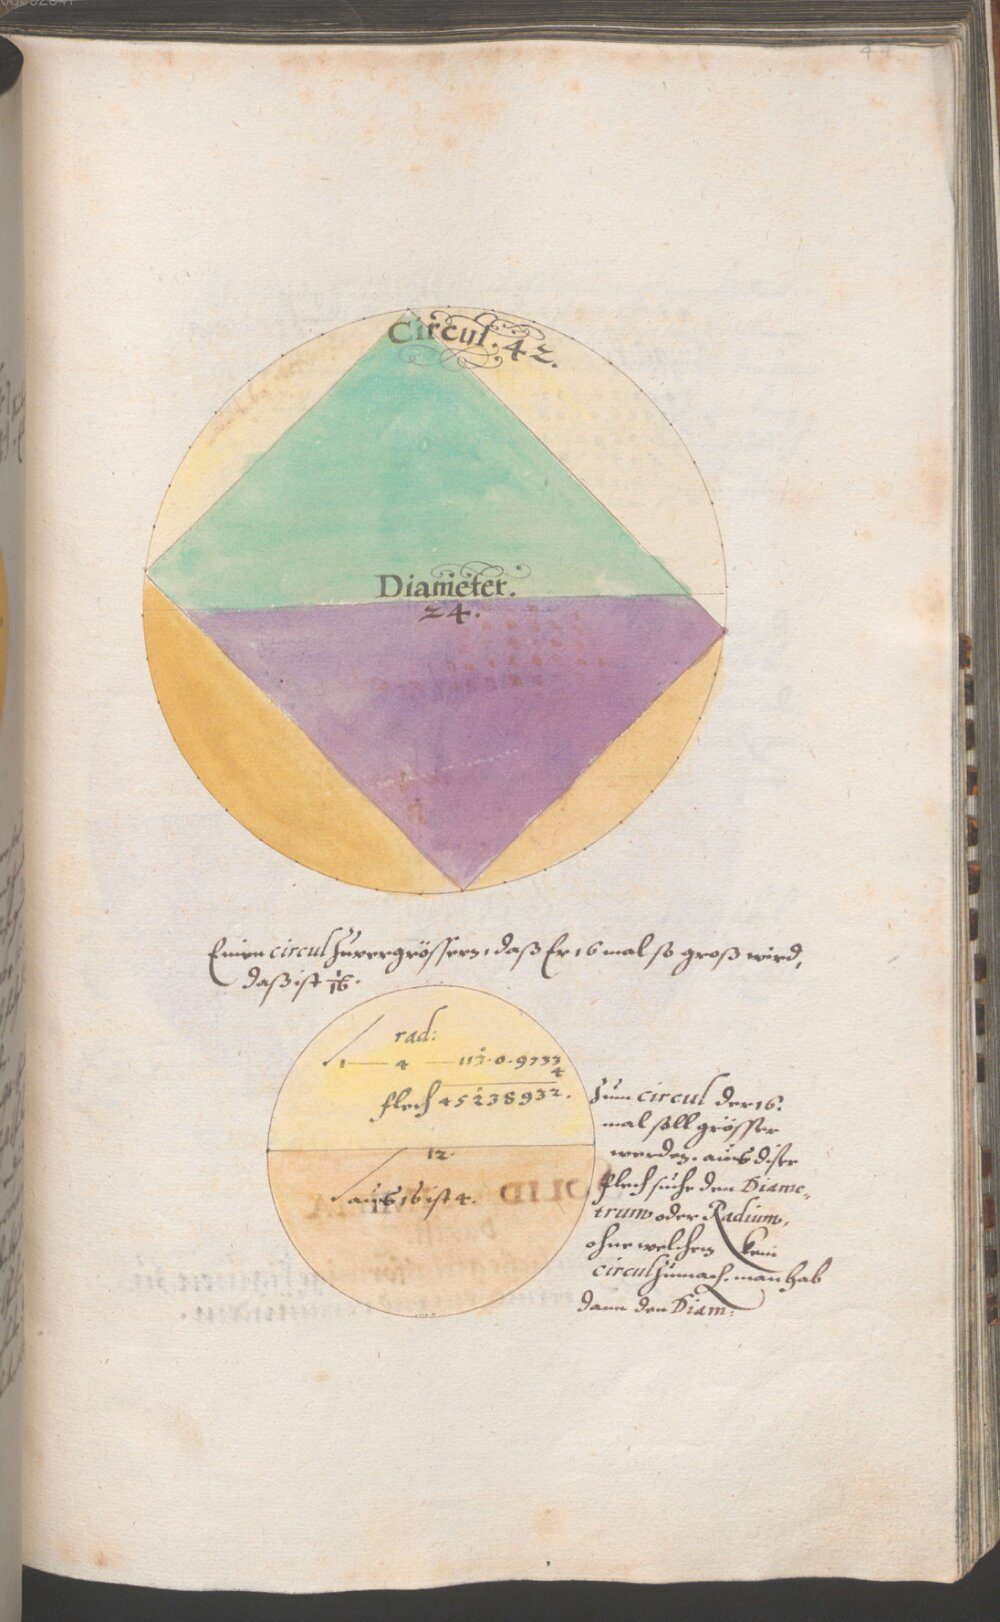 44
Circul. 42.
Diameter.
24.
Einen circul zuvergrössern, daß Er 16 mal so groß wird,
daß ist 1/16.
rad:
1 — 4 — 113.0.9733
4
flech 45238932.
12.
auß 16 ist 4.
Zum circul der 16.
mal soll grösser
werden. auß diser
flech suche den Diame-
trum oder Radium,
ohne welchen kein
circul zumach. man hab
dann den Diam: